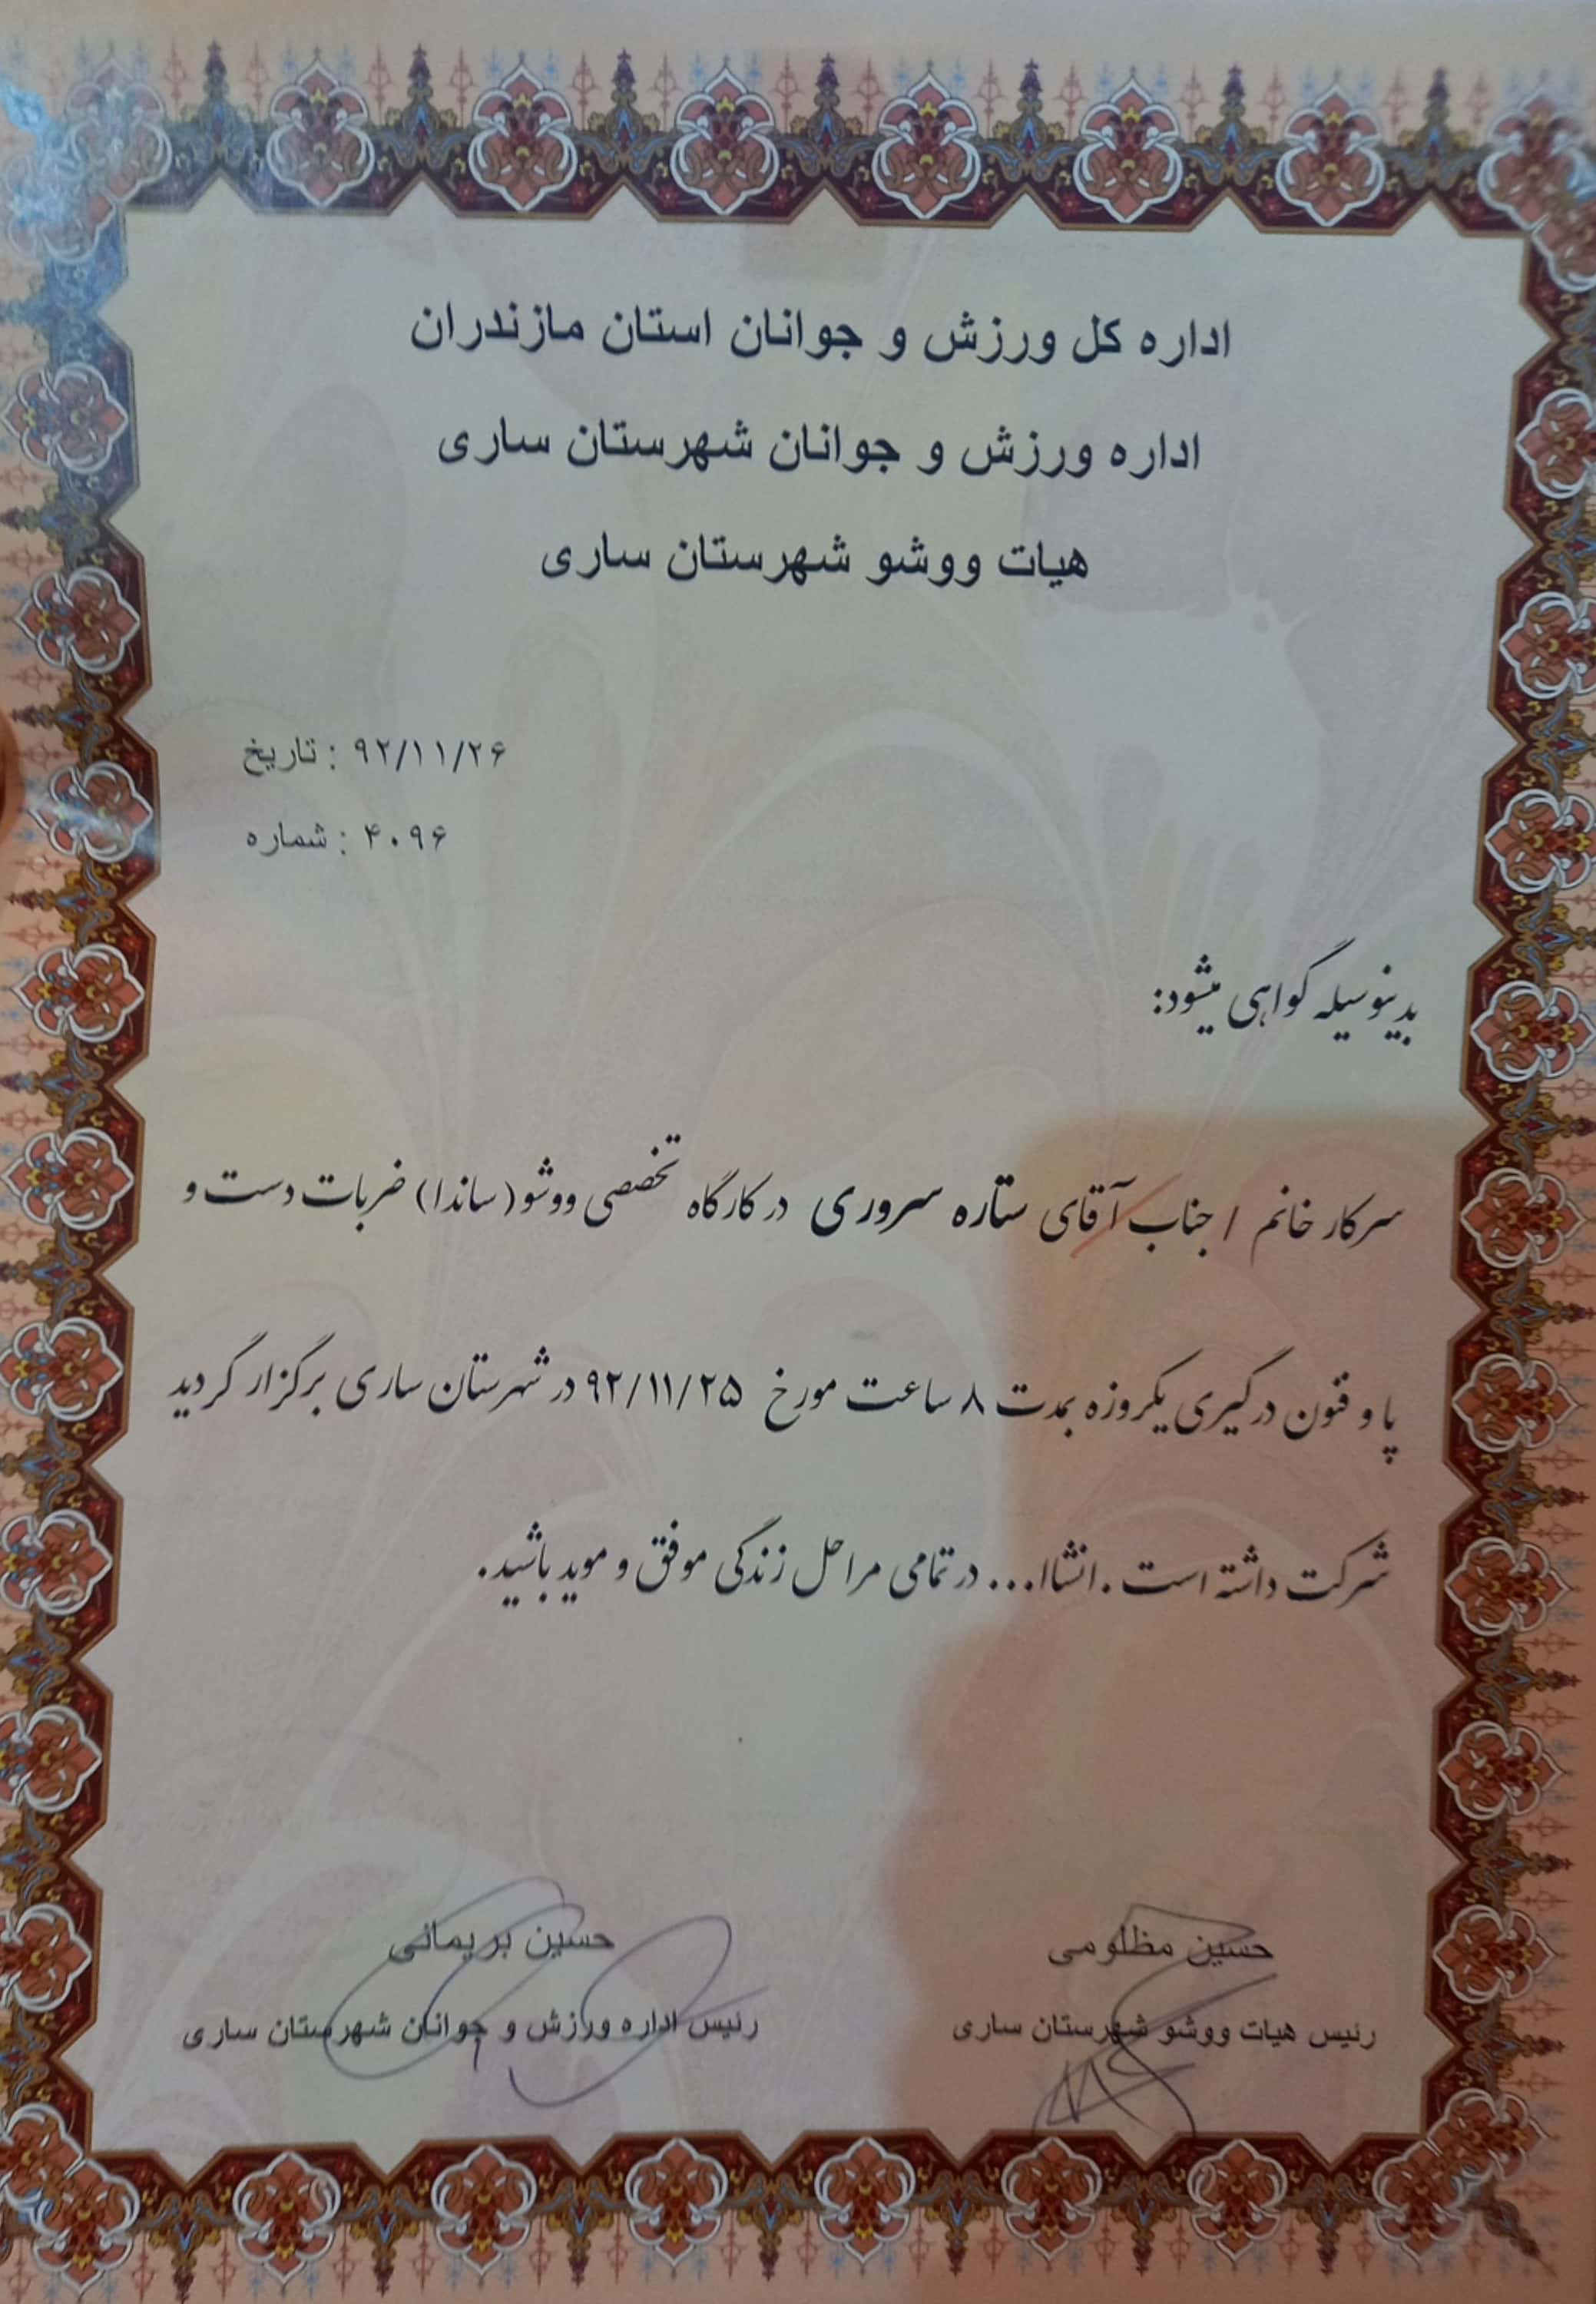 اداره کل ورزش و جوانان استان مازندران
اداره ورزش و جوانان شهرستان ساری
هیات ووشو شهرستان ساری
۹۲/۱۱/۲۶ : تاریخ
۴۰۹۶ : شماره
بدینوسیله گواهی میشود:
سرکار خانم / جناب آقای ستاره سروری در کارگاه تخصصی ووشو (ساندا) ضربات دست و
پا و فنون درگیری یکروزه بمدت ۸ ساعت مورخ ۹۲/۱۱/۲۵ در شهرستان ساری برگزار گردید
شرکت داشته است . انشاا... در تمامی مراحل زندگی موفق و موید باشید.
حسین مظلومی
رئیس هیات ووشو شهرستان ساری
حسین بریمانی
رئیس اداره ورزش و جوانان شهرستان ساری